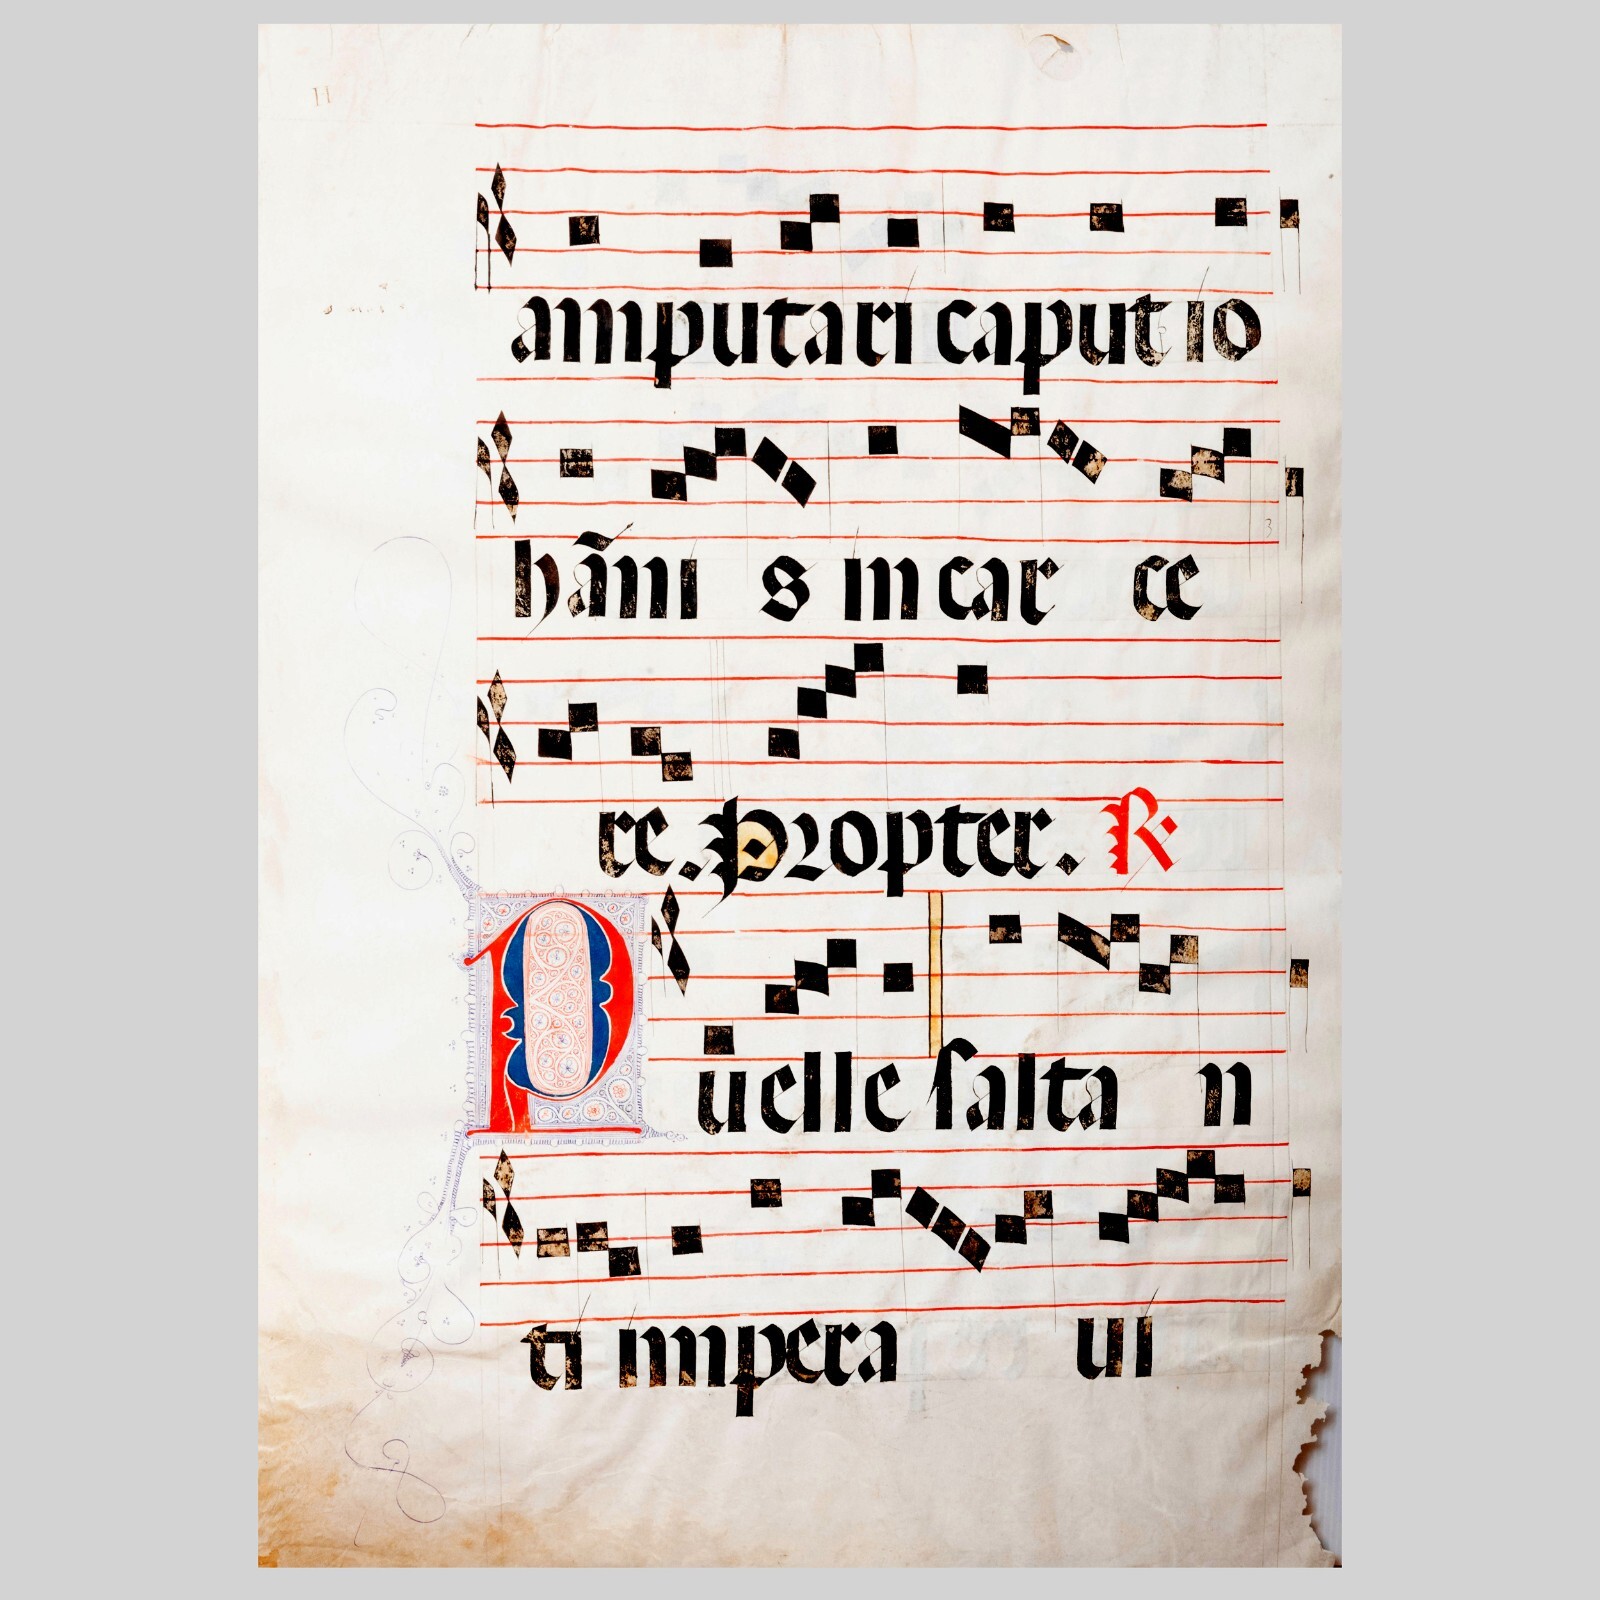 amputari caput io
hãni s in car ce
re. Propter. R.
Puelle salta n
ti impera ui